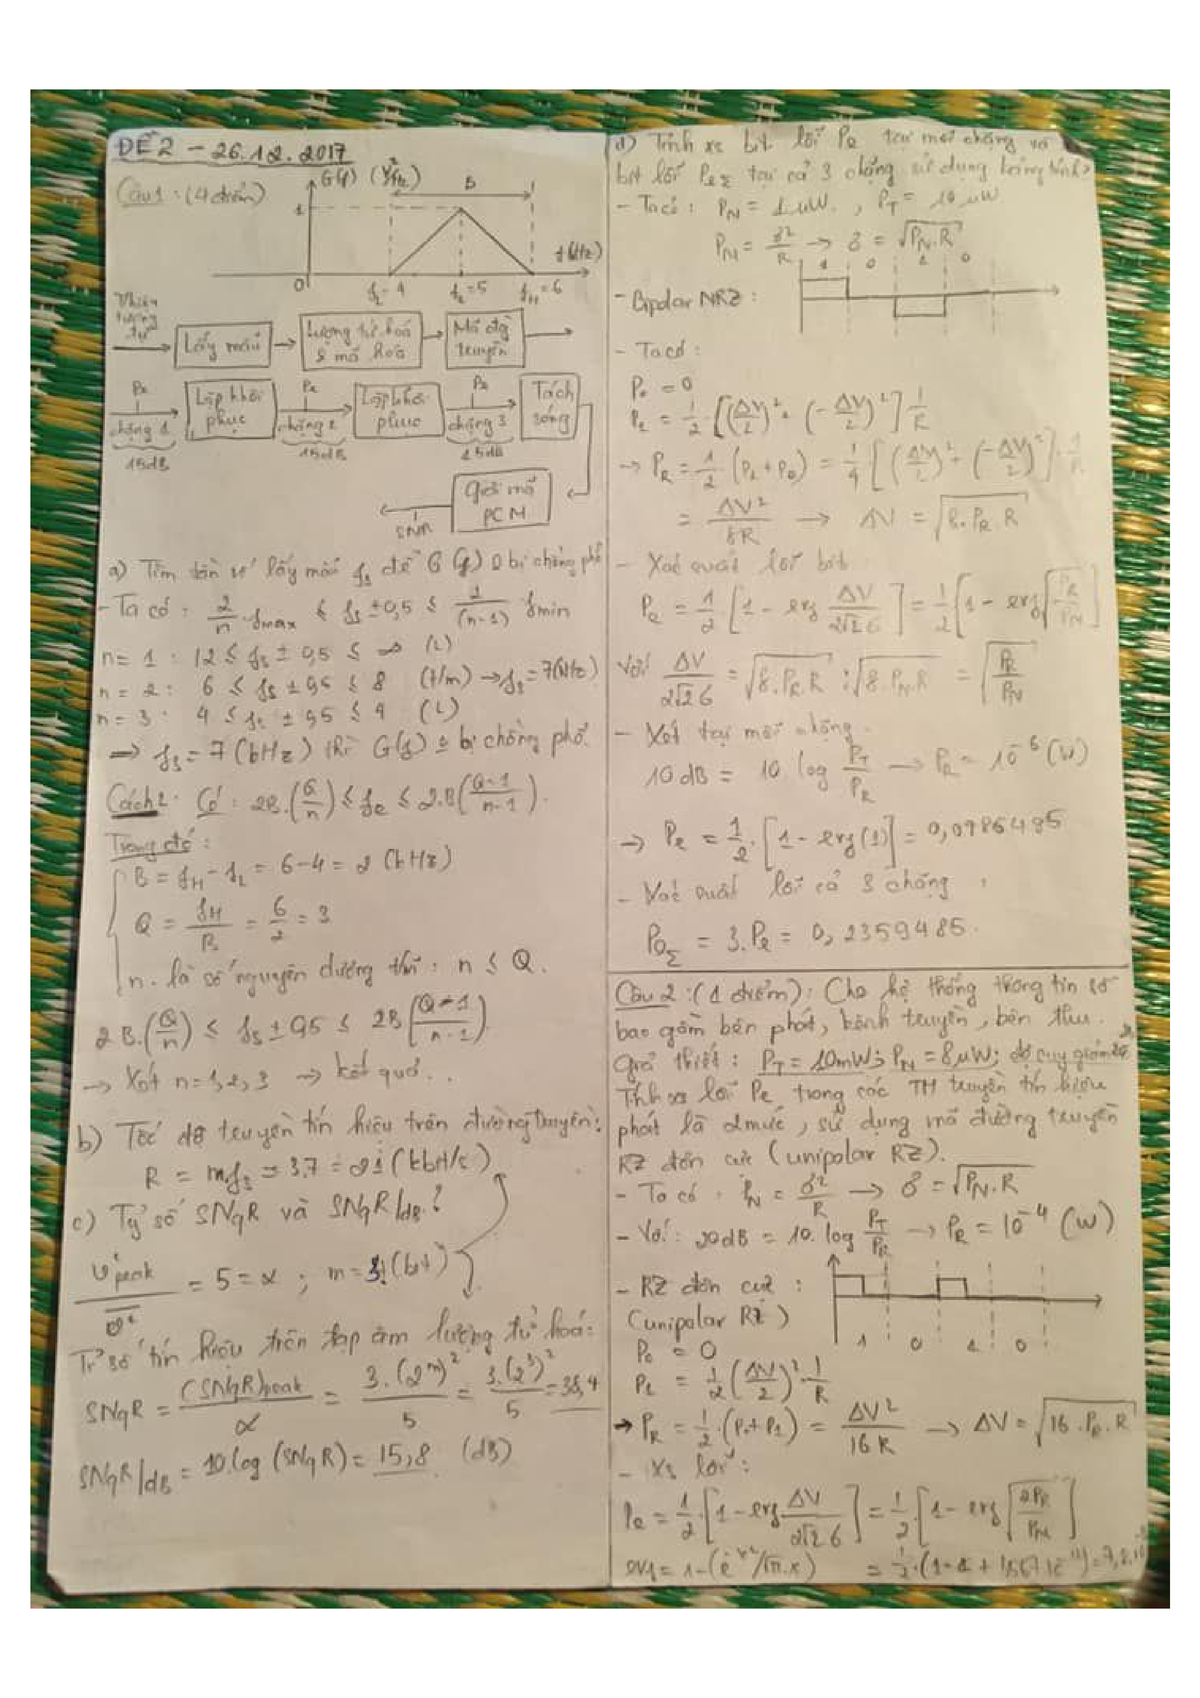 ĐỀ 2 - 26.12.2017
Câu 1: (4 điểm)
G(f) (V²/Hz)
B
1
f(kHz)
0
f_L=4
f_c=5
f_H=6
Nhiễu tương tự
Lấy mẫu
Lượng tử hoá & mã hoá
Mã đg truyền
Pe
Lặp khôi phục
Pe
Lặp khôi phục
Pe
Tách sóng
chặng 1
chặng 2
chặng 3
15dB
15dB
15dB
Giải mã PCM
SNR
a) Tìm tần số lấy mẫu fs để G(f) o bị chồng phổ
- Ta có: 2/n . fmax ≤ fs ± 0,5 ≤ 2/(n-1) . fmin
n = 1: 12 ≤ fs ± 0,5 ≤ ∞ (L)
n = 2: 6 ≤ fs ± 0,5 ≤ 8 (t/m) → fs = 7(kHz)
n = 3: 4 ≤ fs ± 0,5 ≤ 4 (L)
→ fs = 7 (kHz) thì G(f) o bị chồng phổ.
Cách 2: Có: 2B.(Q/n) ≤ fs ≤ 2.B(Q-1/n-1).
Trong đó:
B = f_H - f_L = 6-4 = 2 (kHz)
Q = f_H/B = 6/2 = 3
n. là số nguyên dương thì: n ≤ Q.
2B.(Q/n) ≤ fs ± 0,5 ≤ 2B(Q-1/n-1)
→ Xét n=1,2,3 → kết quả...
b) Tốc độ truyền tín hiệu trên đường truyền:
R = m.fs = 3.7 = 21 (kbit/s)
c) Tỷ số SNqR và SNqR|dB?
v²peak/v² = 5 = α; m = 3 (bit)
Tỉ số tín hiệu trên tạp âm lượng tử hoá:
SNqR = (SNqR)peak/α = 3.(2^m)²/5 = 3.(2³)²/5 = 38,4
SNqR|dB = 10.log(SNqR) = 15,8 (dB)
d) Tính xs bit lỗi Pe tại mỗi chặng và
bit lỗi PeΣ tại cả 3 chặng sử dụng
- Ta có: P_N = 1µW, P_T = 10µW
P_N = σ²/R → σ = √(P_N.R)
- Bipolar NRZ:
1 0 1 0
- Ta có:
P₀ = 0
P₁ = 1/2 . [(ΔV/2)² + (-ΔV/2)²] 1/R
→ P_R = 1/2 . (P₁+P₀) = 1/4 [(ΔV/2)² + (-ΔV/2)²] . 1/R
= ΔV²/8R → ΔV = √(8.P_R R)
- Xác suất lỗi bit
Pe = 1/2 . [1 - erf ΔV/2√2σ] = 1/2 [1 - erf √(P_R/P_N)]
Với ΔV/2√2σ = √(8.P_R.R) : √(8.P_N.R) = √(P_R/P_N)
- Xét tại mỗi chặng.
10dB = 10. log P_T/P_R → P_R = 10⁻⁶ (W)
→ Pe = 1/2 . [1 - erf(1)] = 0,0786495
- Xác suất lỗi cả 3 chặng:
PeΣ = 3.Pe = 0,2359485.
Câu 2: (1 điểm): Cho hệ thống thông tin số
bao gồm bên phát, kênh truyền, bên thu.
Giả thiết: P_T = 10mW; P_N = 8µW; độ suy giảm
Tính xs lỗi Pe trong các TH truyền tín hiệu
phát là 2 mức, sử dụng mã đường truyền
RZ đơn cực (unipolar RZ).
- Ta có: P_N = σ²/R → σ = √(P_N.R)
- Với: 20dB = 10. log P_T/P_R → P_R = 10⁻⁴ (W)
- RZ đơn cực:
(unipolar RZ)
1 0 1 0
P₀ = 0
P₁ = 1/2 (ΔV/2)² . 1/R
→ P_R = 1/2 . (P₀+P₁) = ΔV²/16R → ΔV = √(16.P_R.R)
- Xs lỗi:
Pe = 1/2 . [1 - erf ΔV/2√2σ] = 1/2 . [1 - erf √(2P_R/P_N)]